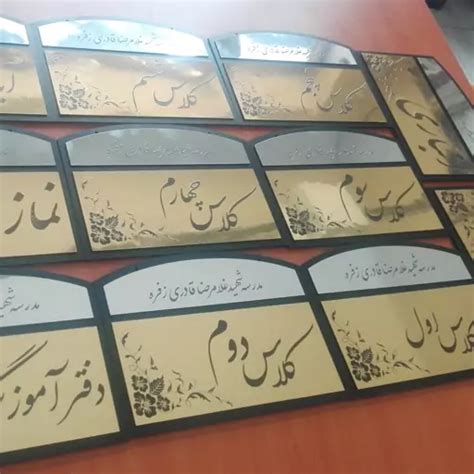 مدرسه شهید غلامرضا قادری زفره
کلاس ششم
مدرسه شهید غلامرضا قادری زفره
کلاس پنجم
مدرسه شهید غلامرضا قادری زفره
کلاس چهارم
مدرسه شهید غلامرضا قادری زفره
کلاس سوم
نماز
مدرسه شهید غلامرضا قادری زفره
کلاس دوم
مدرسه شهید غلامرضا قادری زفره
کلاس اول
مدرسه
دفتر